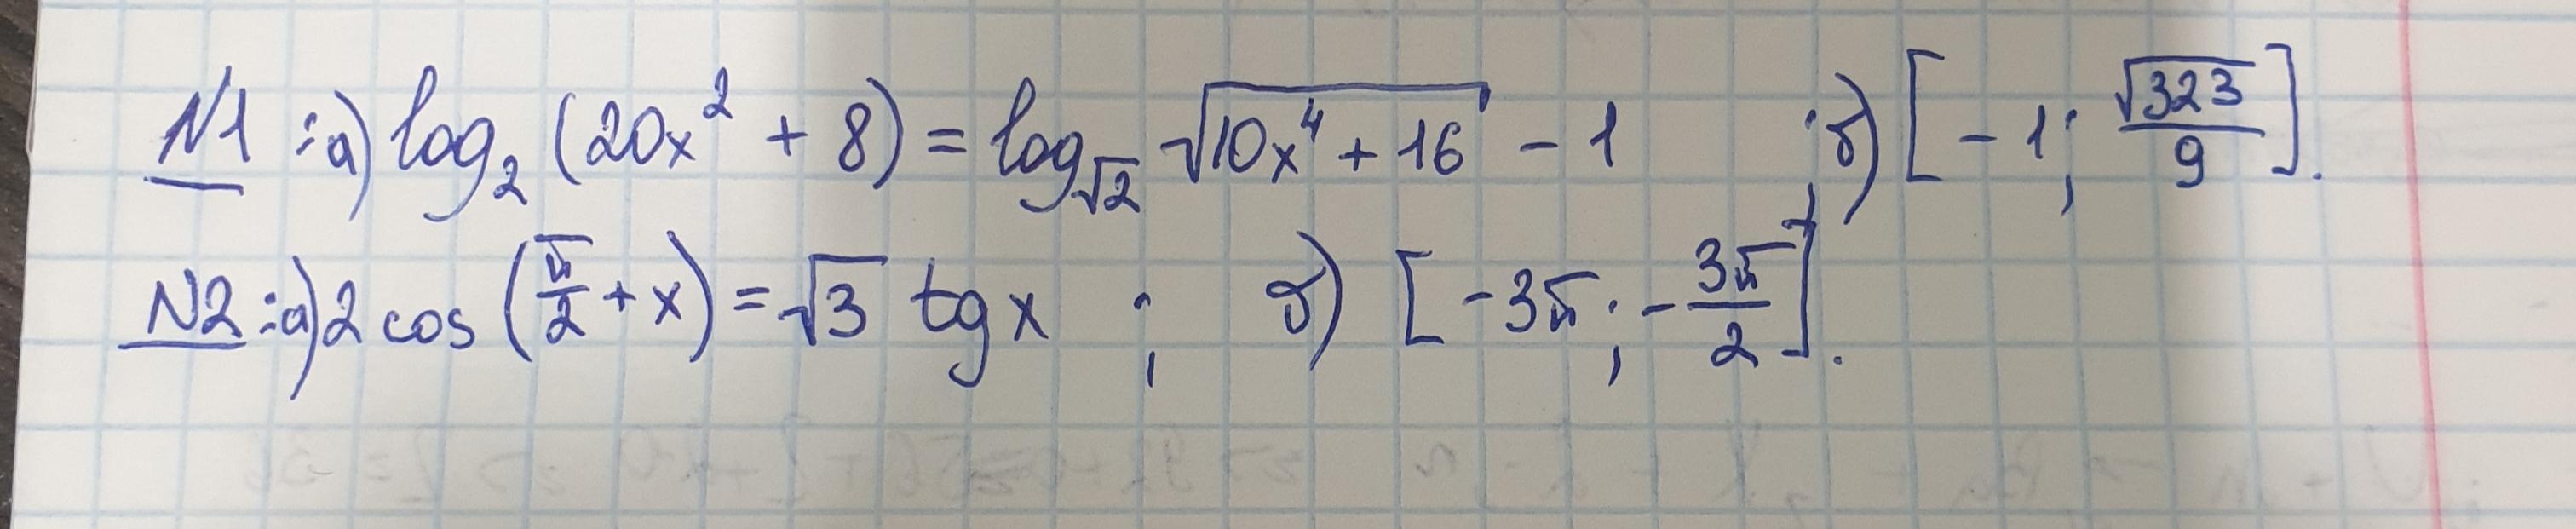 N1 :а) log₂ (20x² + 8) = log_√2 √(10x⁴ + 16) - 1 ; б) [-1; √323/9].
N2 :а) 2 cos (π/2 + x) = √3 tg x ; б) [-3π; -3π/2].